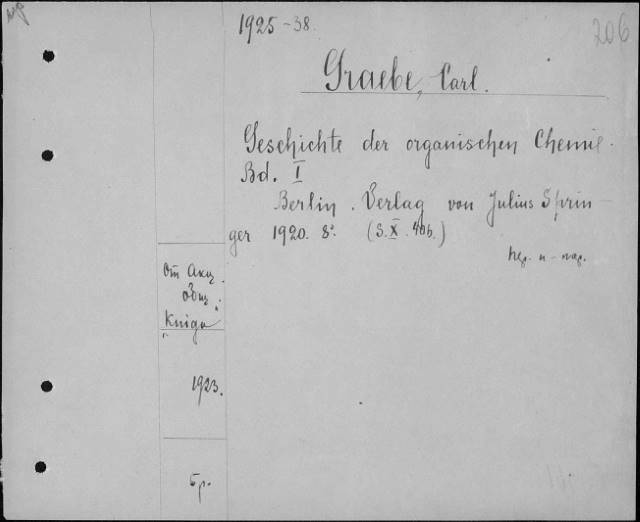 1925-38.
206
Graebe, Carl.
Geschichte der organischen Chemie.
Bd. I
Berlin. Verlag von Julius Sprin-
ger 1920. 8°. (S. X. 406.)
От Акц.
общ.
"Книга"
1923.
бр.